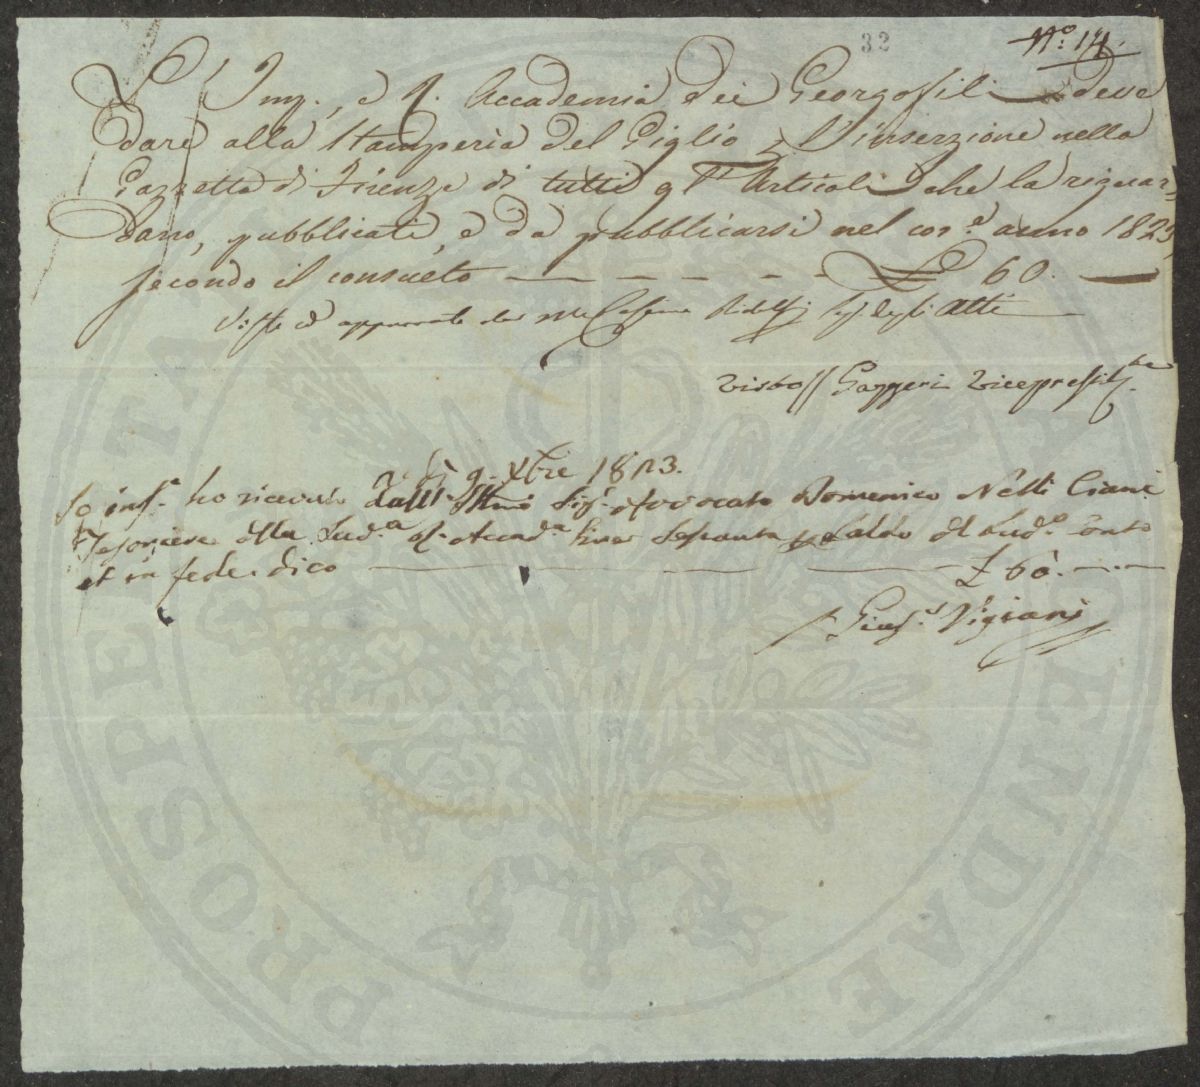 32
N.° 14.
L' Imp., e R. Accademia dei Georgofili deve
dare alla Stamperia del Giglio p. L'inserzione nella
Gazzetta di Firenze di tutti gl' Articoli che la riguar=
dano, pubblicati, e da pubblicarsi nel cor.e anno 1823
secondo il consueto £ 60.
Visto ed approvato da me Cosimo Ridolfi Seg. degli Atti
Visto Gazzeri Vicepresid.te
A dì 9. Xbre 1823.
Io inf.o ho ricevuto dall' Ill.mo Sig. Avvocato Domenico Nelli Ciani
Tesoriere della Sud.a R. Accad.a Lire Sessanta p. Saldo del sud.o Conto
et in fede. dico £ 60.
Gius.e Vigiani
PROSPERITATI AUGENDAE